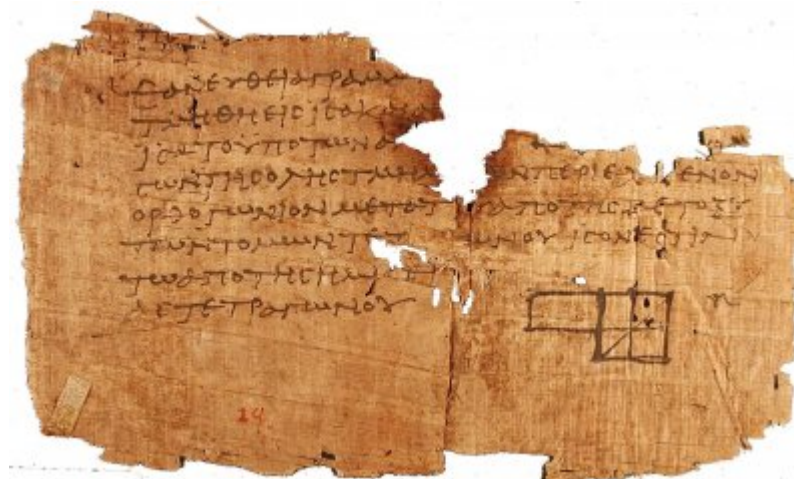 ΕΑΝ ΕΥΘΕΙΑ ΓΡΑΜΜ
ΤΜΗΘΗ ΕΙΣ ΙΣΑ ΚΑΙ
ΙΣΑ ΤΟ ΥΠΟ ΤΩΝ Α
ΣΩΝ ΤΗΣ ΟΛΗΣ ΤΜΗΜΑ ΩΝ ΠΕΡΙΕΧ ΕΝΟΝ
ΟΡΘΟΓΩΝΙΟΝ ΜΕΤΑ ΤΟΥ ΑΠΟ ΤΗΣ ΜΕΤΟΞΥ
ΤΩΝ ΤΟΜΩΝ ΤΕΤ ΩΝΟΥ ΙΣΟΝ ΕΣΤΙΝ
ΤΩ ΑΠΟ ΤΗΣ ΗΜΙΣΕΙ
ΤΕΤΡΑΓΩΝΟΥ